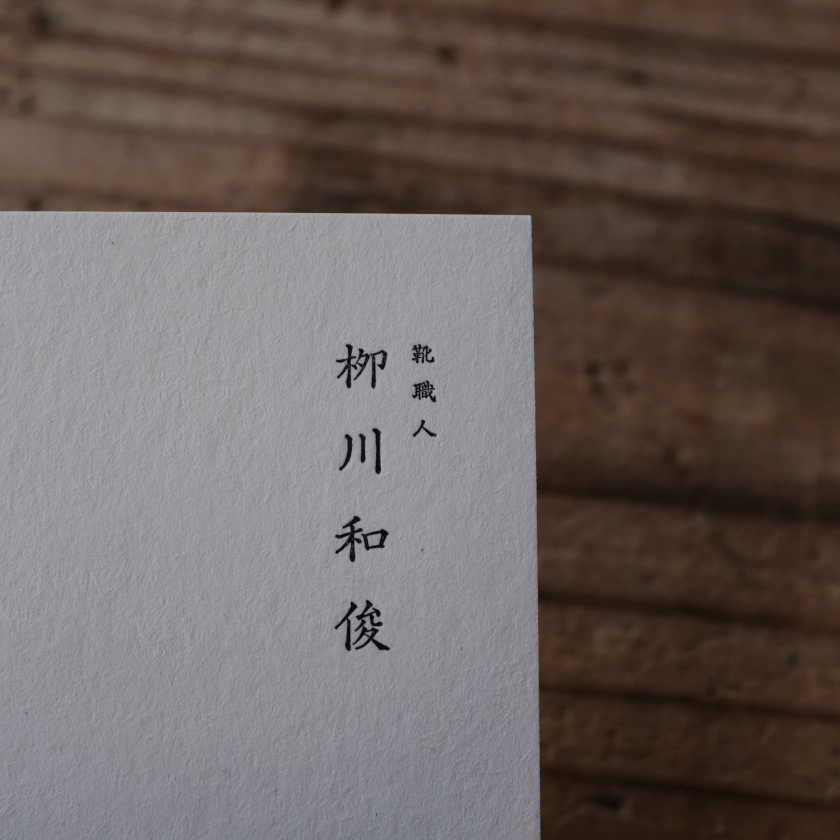 靴職人
栁川和俊